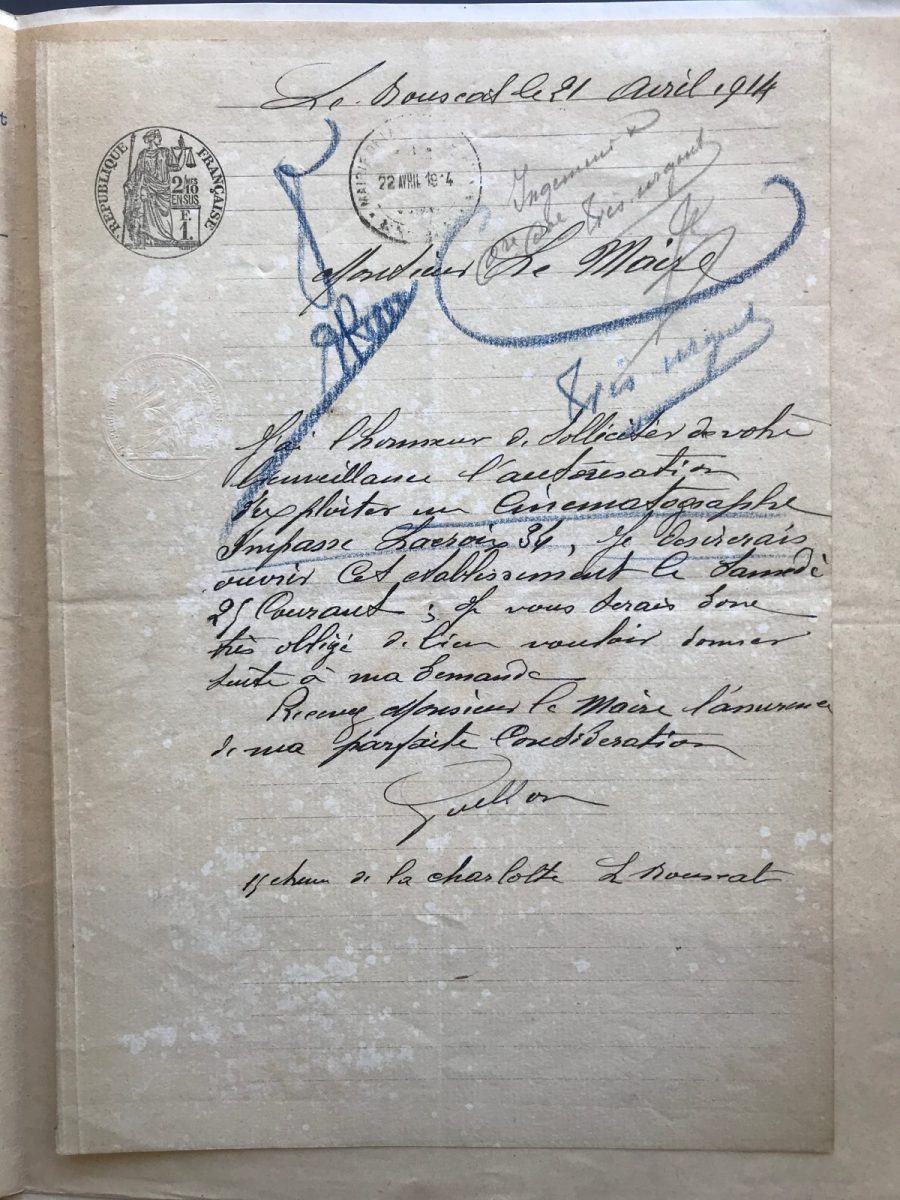 Le Bouscat le 21 Avril 1914
RÉPUBLIQUE FRANÇAISE
2/10
EN SUS
F.
1.
MAIRIE
22 AVRIL 1914
Ingénieur
Très urgent
Monsieur Le Maire
Très urgent
J'ai l'honneur de solliciter de votre
bienveillance l'autorisation
d'exploiter un Cinématographe
Impasse Lacroix 34, Je desirerais
ouvrir cet etablissement le Samedi
25 Courant ; Je vous serais donc
très obligé de bien vouloir donner
suite à ma demande
Recevez Monsieur le Maire l'assurence
de ma parfaite Consideration
15 de la charlotte Le Bouscat